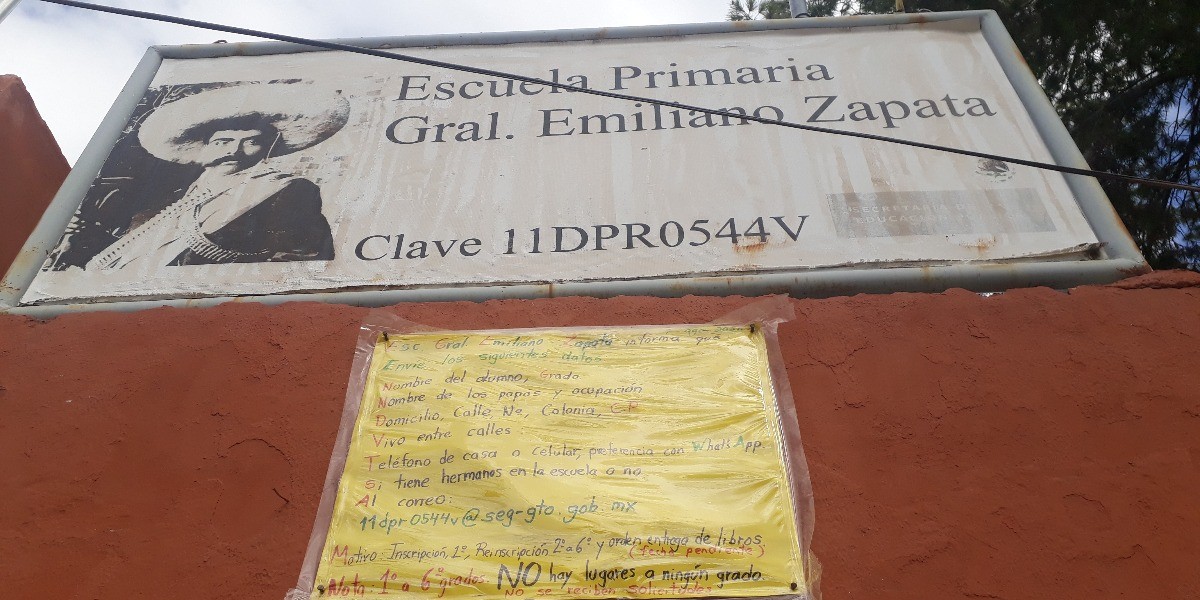 Escuela Primaria
Gral. Emiliano Zapata
Clave 11DPR0544V
SECRETARÍA DE
EDUCACIÓN
Esc Gral Emiliano Zapata informa que
Envíe los siguientes datos
Nombre del alumno, Grado
Nombre de los papas y ocupación
Domicilio, Calle, No, Colonia, C.P
Vivo entre calles
Teléfono de casa o celular, preferencia con WhatsApp.
Si tiene hermanos en la escuela o no
Al correo:
11dpr0544v@seg-gto.gob.mx
Motivo: Inscripción, 1°, Reinscripción 2° a 6° y orden entrega de libros
(fecha pendiente)
Nota: 1° a 6° grados. NO hay lugares a ningún grado.
No se reciben solicitudes